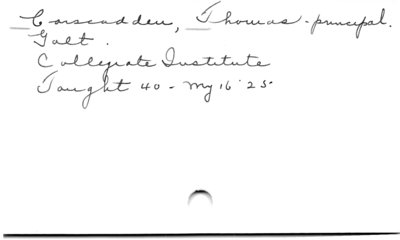 Carscadden, Thomas - principal.
Galt.
Collegiate Institute
Taught 40 - My 16 '25